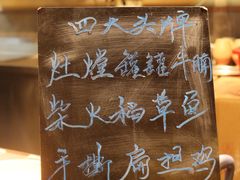 四大头牌
灶膛罐罐牛腩
柴火稻草鱼
手撕扁担鸡